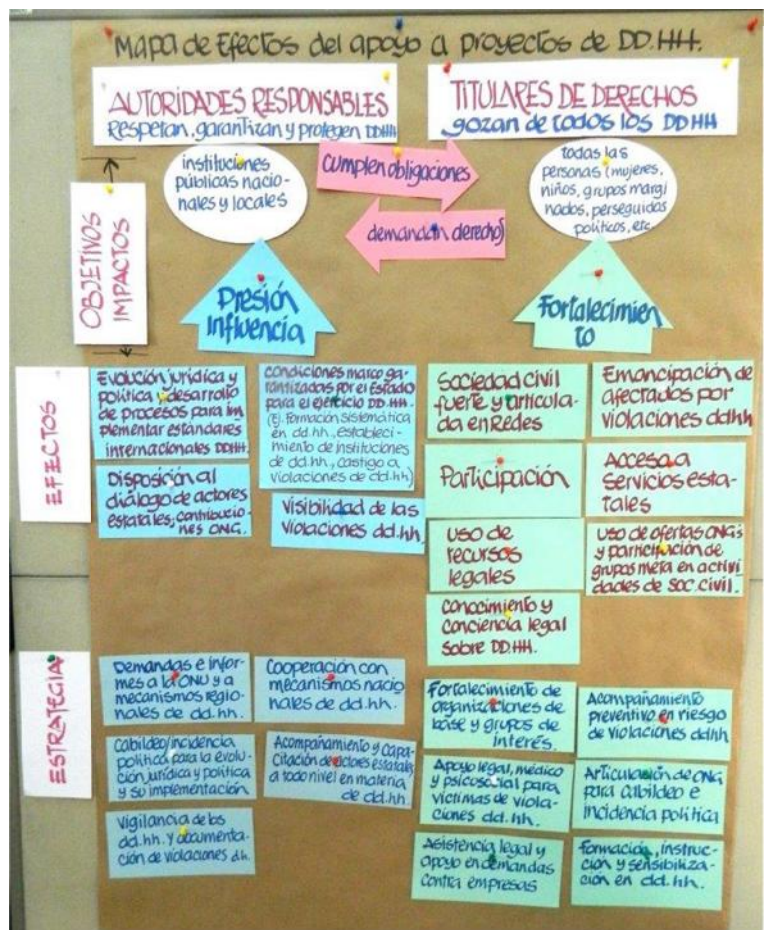 Mapa de Efectos del apoyo a proyectos de DD.HH.
AUTORIDADES RESPONSABLES
Respetan, garantizan y protegen DDHH
TITULARES DE DERECHOS
gozan de todos los DDHH
OBJETIVOS
IMPACTOS
instituciones
públicas nacio-
nales y locales
cumplen obligaciones
demandan derechos
todas las
personas (mujeres,
niños, grupos margi
nados, perseguidos
políticos, etc
Presión
Influencia
Fortalecimien
to
EFECTOS
Evolución jurídica y
política y desarrollo
de procesos para im
plementar estándares
internacionales DDHH.
Disposición al
diálogo de actores
estatales, contribucio-
nes ONG.
condiciones marco ga-
rantizadas por el Estado
para el ejercicio DD.HH.
(Ej. Formación sistemática
en dd.hh., estableci-
miento de instituciones
de dd.hh., castigo a
violaciones de dd.hh)
Visibilidad de las
violaciones dd.hh.
Sociedad civil
fuerte y articula-
da en Redes
Participación
uso de
recursos
legales
conocimiento y
conciencia legal
sobre DD.HH.
Emancipación de
afectados por
violaciones ddhh
Acceso a
Servicios esta-
tales
uso de ofertas ONG's
y participación de
grupos meta en activi
dades de Soc. civil.
ESTRATEGIA
Demandas e infor-
mes a la ONU y a
mecanismos regio-
nales de dd.hh.
Cabildeo/incidencia
política para la evolu-
ción jurídica y política
y su implementación
vigilancia de los
dd.hh. y documenta-
ción de violaciones dh.
Cooperación con
mecanismos nacio
nales de dd.hh.
Acompañamiento y capa-
citación de actores estatales
a todo nivel en materia
de dd.hh.
Fortalecimiento de
organizaciones de
base y grupos de
interés.
Apoyo legal, médico
y psicosocial para
víctimas de viola-
ciones dd.hh.
Asistencia legal y
apoyo en demandas
contra empresas
Acompañamiento
preventivo en riesgo
de violaciones ddhh
Articulación de ONG
para cabildeo e
incidencia política
Formación, instruc-
ción y sensibiliza-
ción en dd.hh.